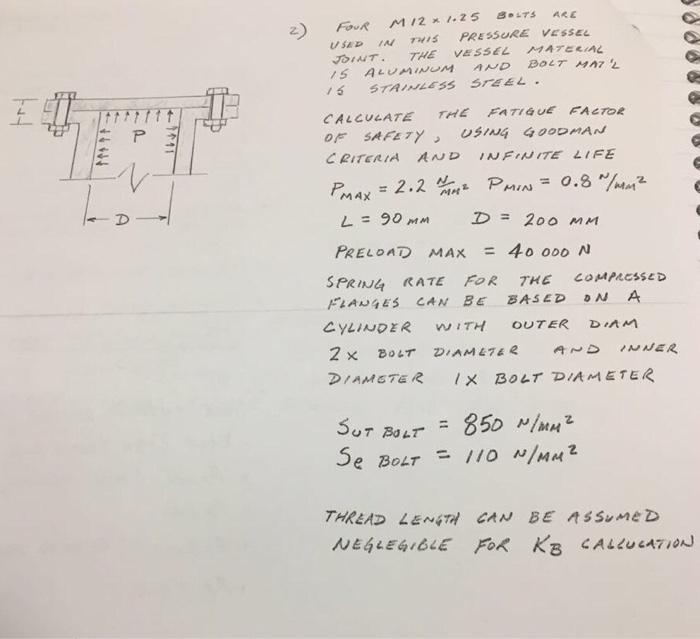 2) FOUR M12 x 1.25 BOLTS ARE
USED IN THIS PRESSURE VESSEL
JOINT. THE VESSEL MATERIAL
IS ALUMINUM AND BOLT MAT'L
IS STAINLESS STEEL.
CALCULATE THE FATIGUE FACTOR
OF SAFETY, USING GOODMAN
CRITERIA AND INFINITE LIFE
PMAX = 2.2 N/MM² PMIN = 0.8 N/MM²
L = 90 MM D = 200 MM
PRELOAD MAX = 40 000 N
SPRING RATE FOR THE COMPRESSED
FLANGES CAN BE BASED ON A
CYLINDER WITH OUTER DIAM
2 x BOLT DIAMETER AND INNER
DIAMETER 1X BOLT DIAMETER
SUT BOLT = 850 N/MM²
Se BOLT = 110 N/MM²
THREAD LENGTH CAN BE ASSUMED
NEGLEGIBLE FOR KB CALCULATION
L
P
D